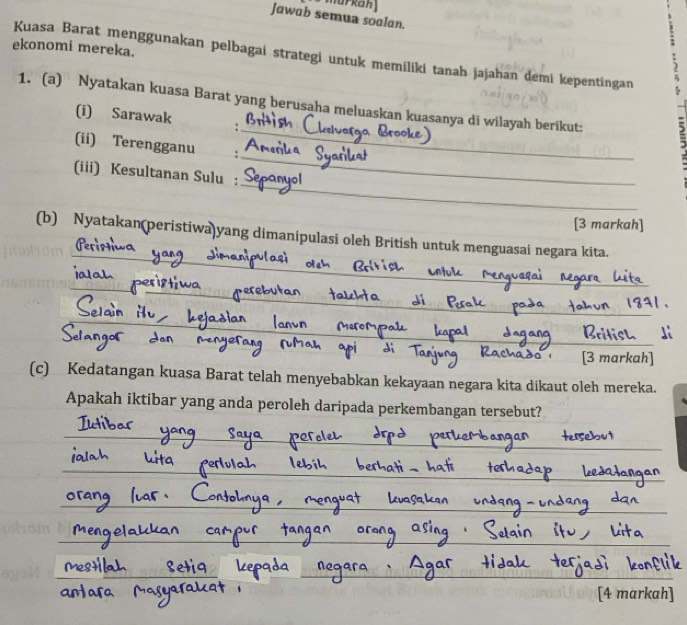 markah]
Jawab semua soalan.
Kuasa Barat menggunakan pelbagai strategi untuk memiliki tanah jajahan demi kepentingan
ekonomi mereka.
1. (a) Nyatakan kuasa Barat yang berusaha meluaskan kuasanya di wilayah berikut:
(i) Sarawak : British (keluarga Brooke)
(ii) Terengganu : Amerika Syarikat
(iii) Kesultanan Sulu : Sepanyol
[3 markah]
(b) Nyatakan (peristiwa) yang dimanipulasi oleh British untuk menguasai negara kita.
Peristiwa yang dimanipulasi oleh British untuk menguasai negara kita
ialah peristiwa perebutan takhta di Perak pada tahun 1871.
Selain itu, kejadian lanun merompak kapal dagang British di
Selangor dan menyerang rumah api di Tanjung Rachado.
[3 markah]
(c) Kedatangan kuasa Barat telah menyebabkan kekayaan negara kita dikaut oleh mereka.
Apakah iktibar yang anda peroleh daripada perkembangan tersebut?
Iktibar yang saya peroleh drpd perkembangan tersebut
ialah kita perlulah lebih berhati-hati terhadap kedatangan
orang luar. Contohnya, menguatkuasakan undang-undang dan
mengelakkan campur tangan orang asing. Selain itu, kita
mestilah setia kepada negara. Agar tidak terjadi konflik
antara masyarakat.
[4 markah]